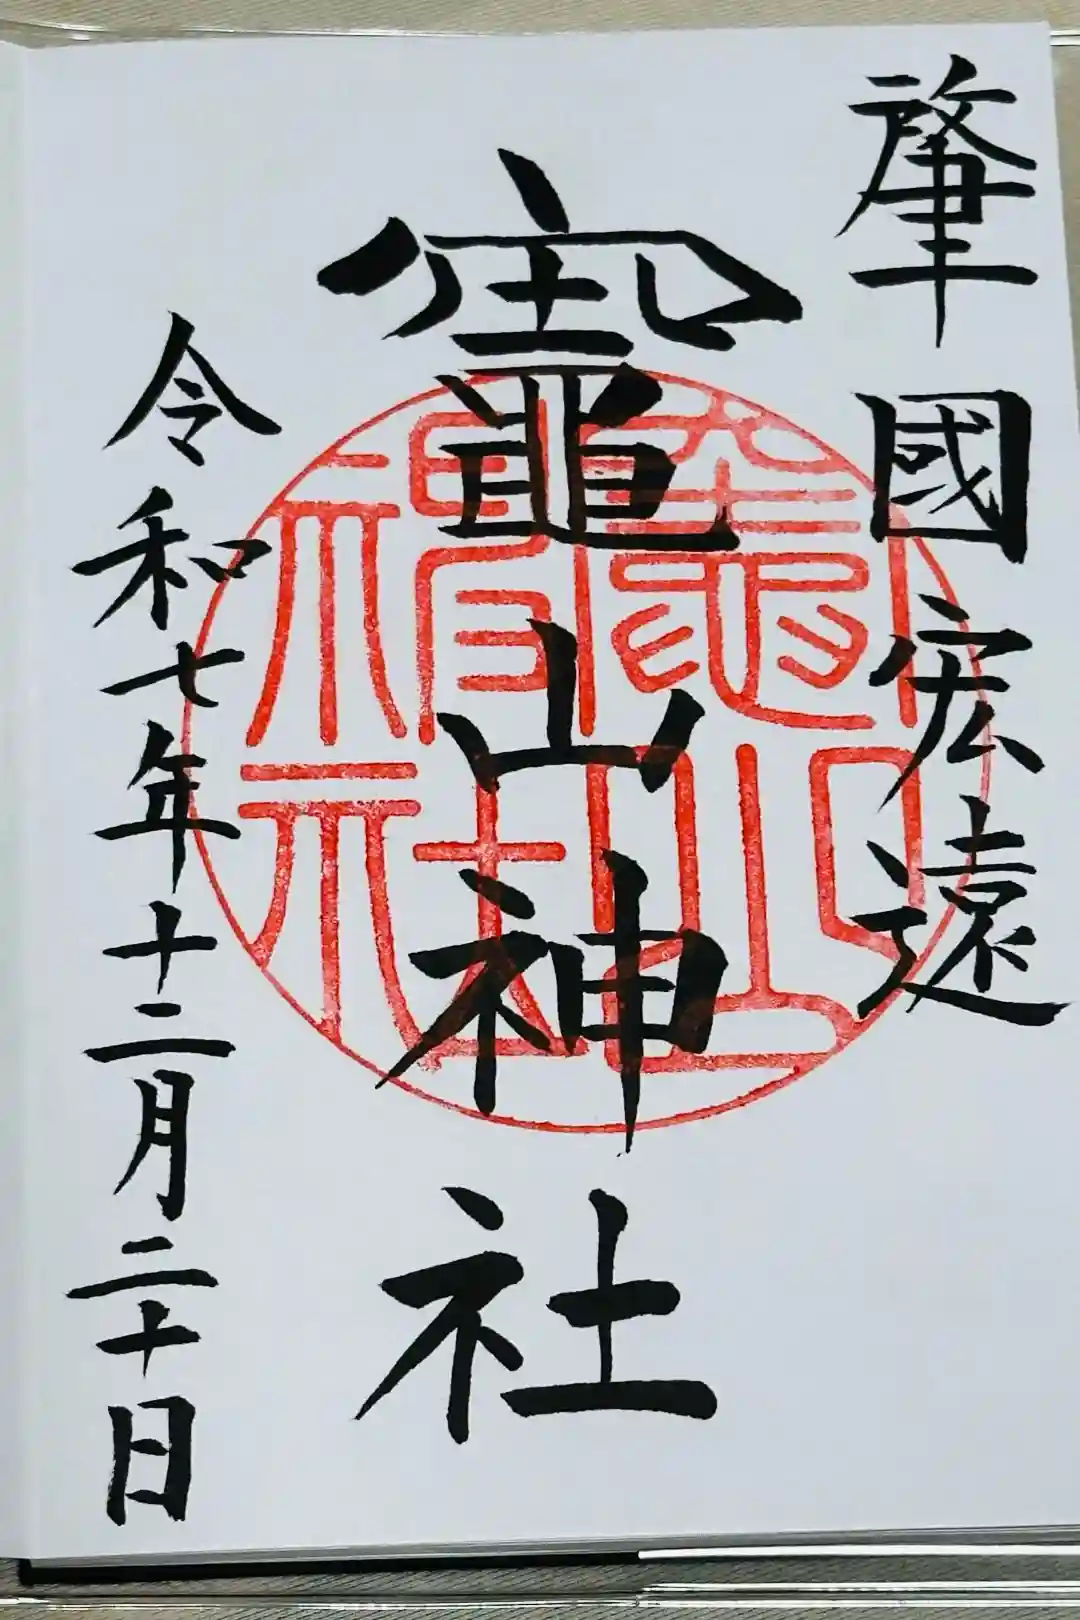 肇國宏遠
竈山神社
令和七年十二月二十日
竈山神社